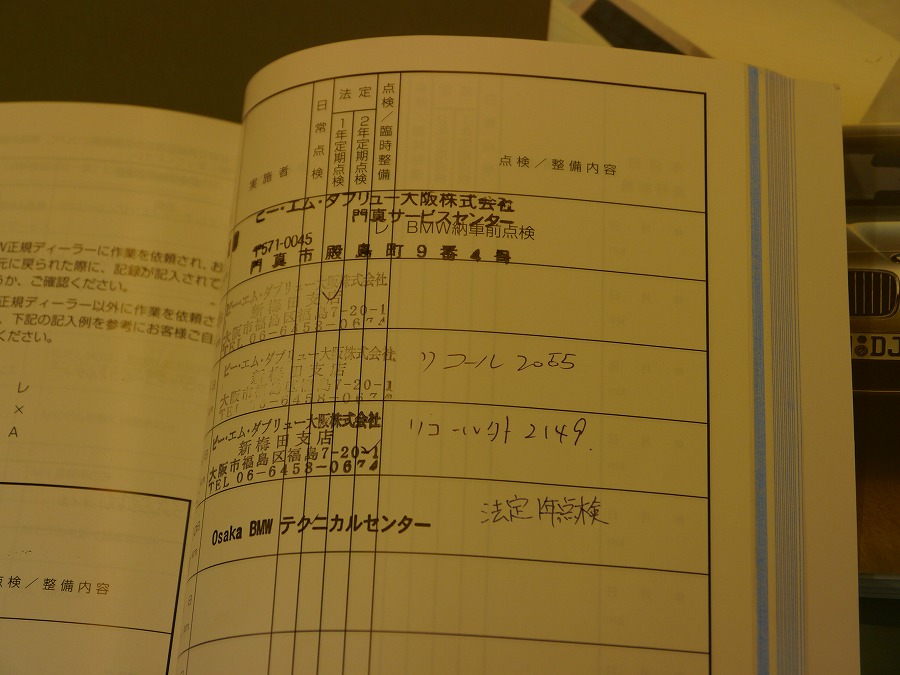 W正規ディーラーに作業を依頼され、お
元に戻られた際に、記録が記入されて
うか、ご確認ください。
正規ディーラー以外に作業を依頼さ
、下記の記入例を参考にお客様ご自
ください。
レ
×
A
点検／整備内容
実施者
日常点検
法定
1年定期点検
2年定期点検
点検／臨時整備
点検／整備内容
ビー・エム・ダブリュー大阪株式会社
門真サービスセンター
レ BMW納車前点検
〒571-0045
門真市殿島町9番4号
ビー・エム・ダブリュー大阪株式会社
新梅田支店
大阪市福島区福島7-20-1
TEL 06-6458-0676
ビー・エム・ダブリュー大阪株式会社
新梅田支店
大阪市福島区福島7-20-1
TEL
リコール 20E5
ビー・エム・ダブリュー大阪株式会社
新梅田支店
大阪市福島区福島7-20-1
TEL 06-6458-0676
2149
Osaka BMW テクニカルセンター
法定 点検
DJ